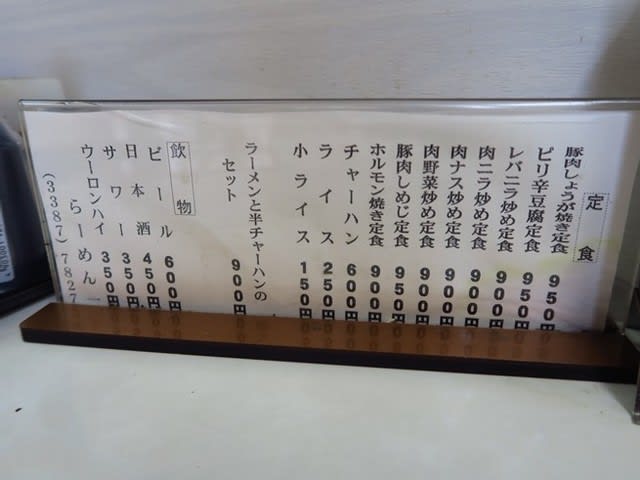 定食
豚肉しょうが焼き定食 950円
ピリ辛豆腐定食 950円
レバニラ炒め定食 900円
肉ニラ炒め定食 900円
肉ナス炒め定食 900円
肉野菜炒め定食 900円
豚肉しめじ定食 950円
ホルモン焼き定食 900円
チャーハン 600円
ライス 250円
小ライス 150円
ラーメンと半チャーハンの
セット 900円
飲物
ビール 600円
日本酒 450円
サワー 350円
ウーロンハイ 350円
らーめん 一
(3387) 7827